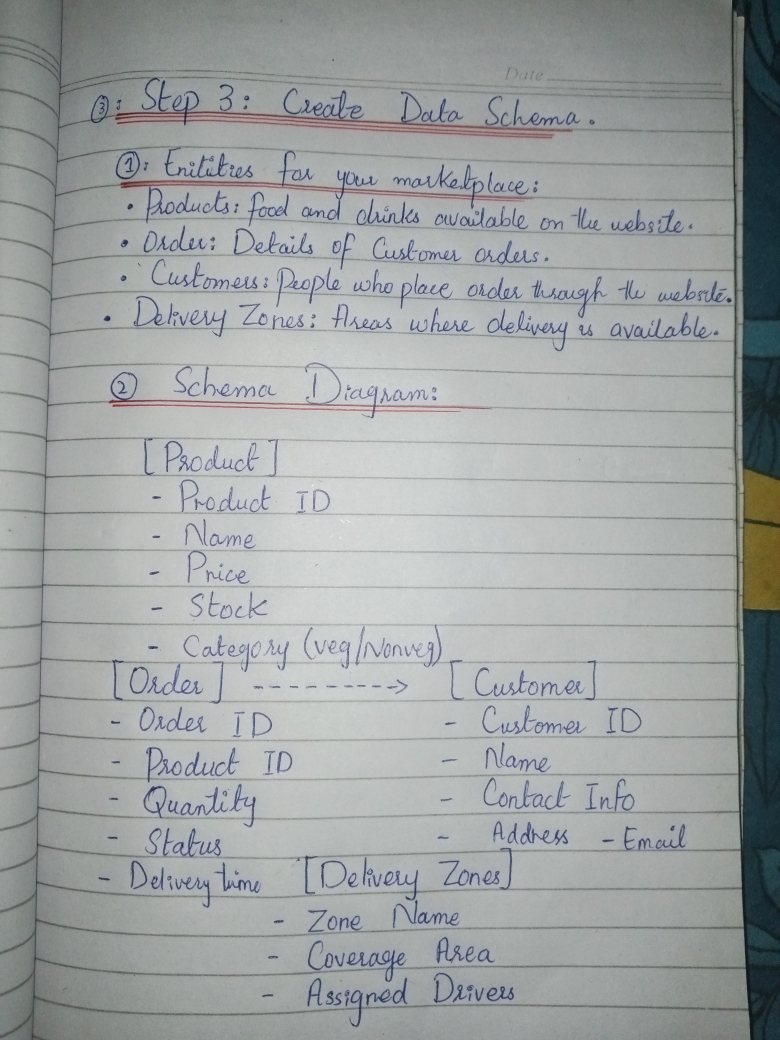 Date
③: Step 3: Create Data Schema.
①: Enitities for your marketplace:
• Products: food and drinks available on the website.
• Order: Details of Customer orders.
• Customers: People who place order through the website.
• Delivery Zones: Areas where delivery is available.
② Schema Diagram:
[Product]
- Product ID
- Name
- Price
- Stock
- Category (veg/Nonveg)
[Order] ---------> [Customer]
- Order ID - Customer ID
- Product ID - Name
- Quantity - Contact Info
- Status - Address - Email
- Delivery time [Delivery Zones]
- Zone Name
- Coverage Area
- Assigned Drivers